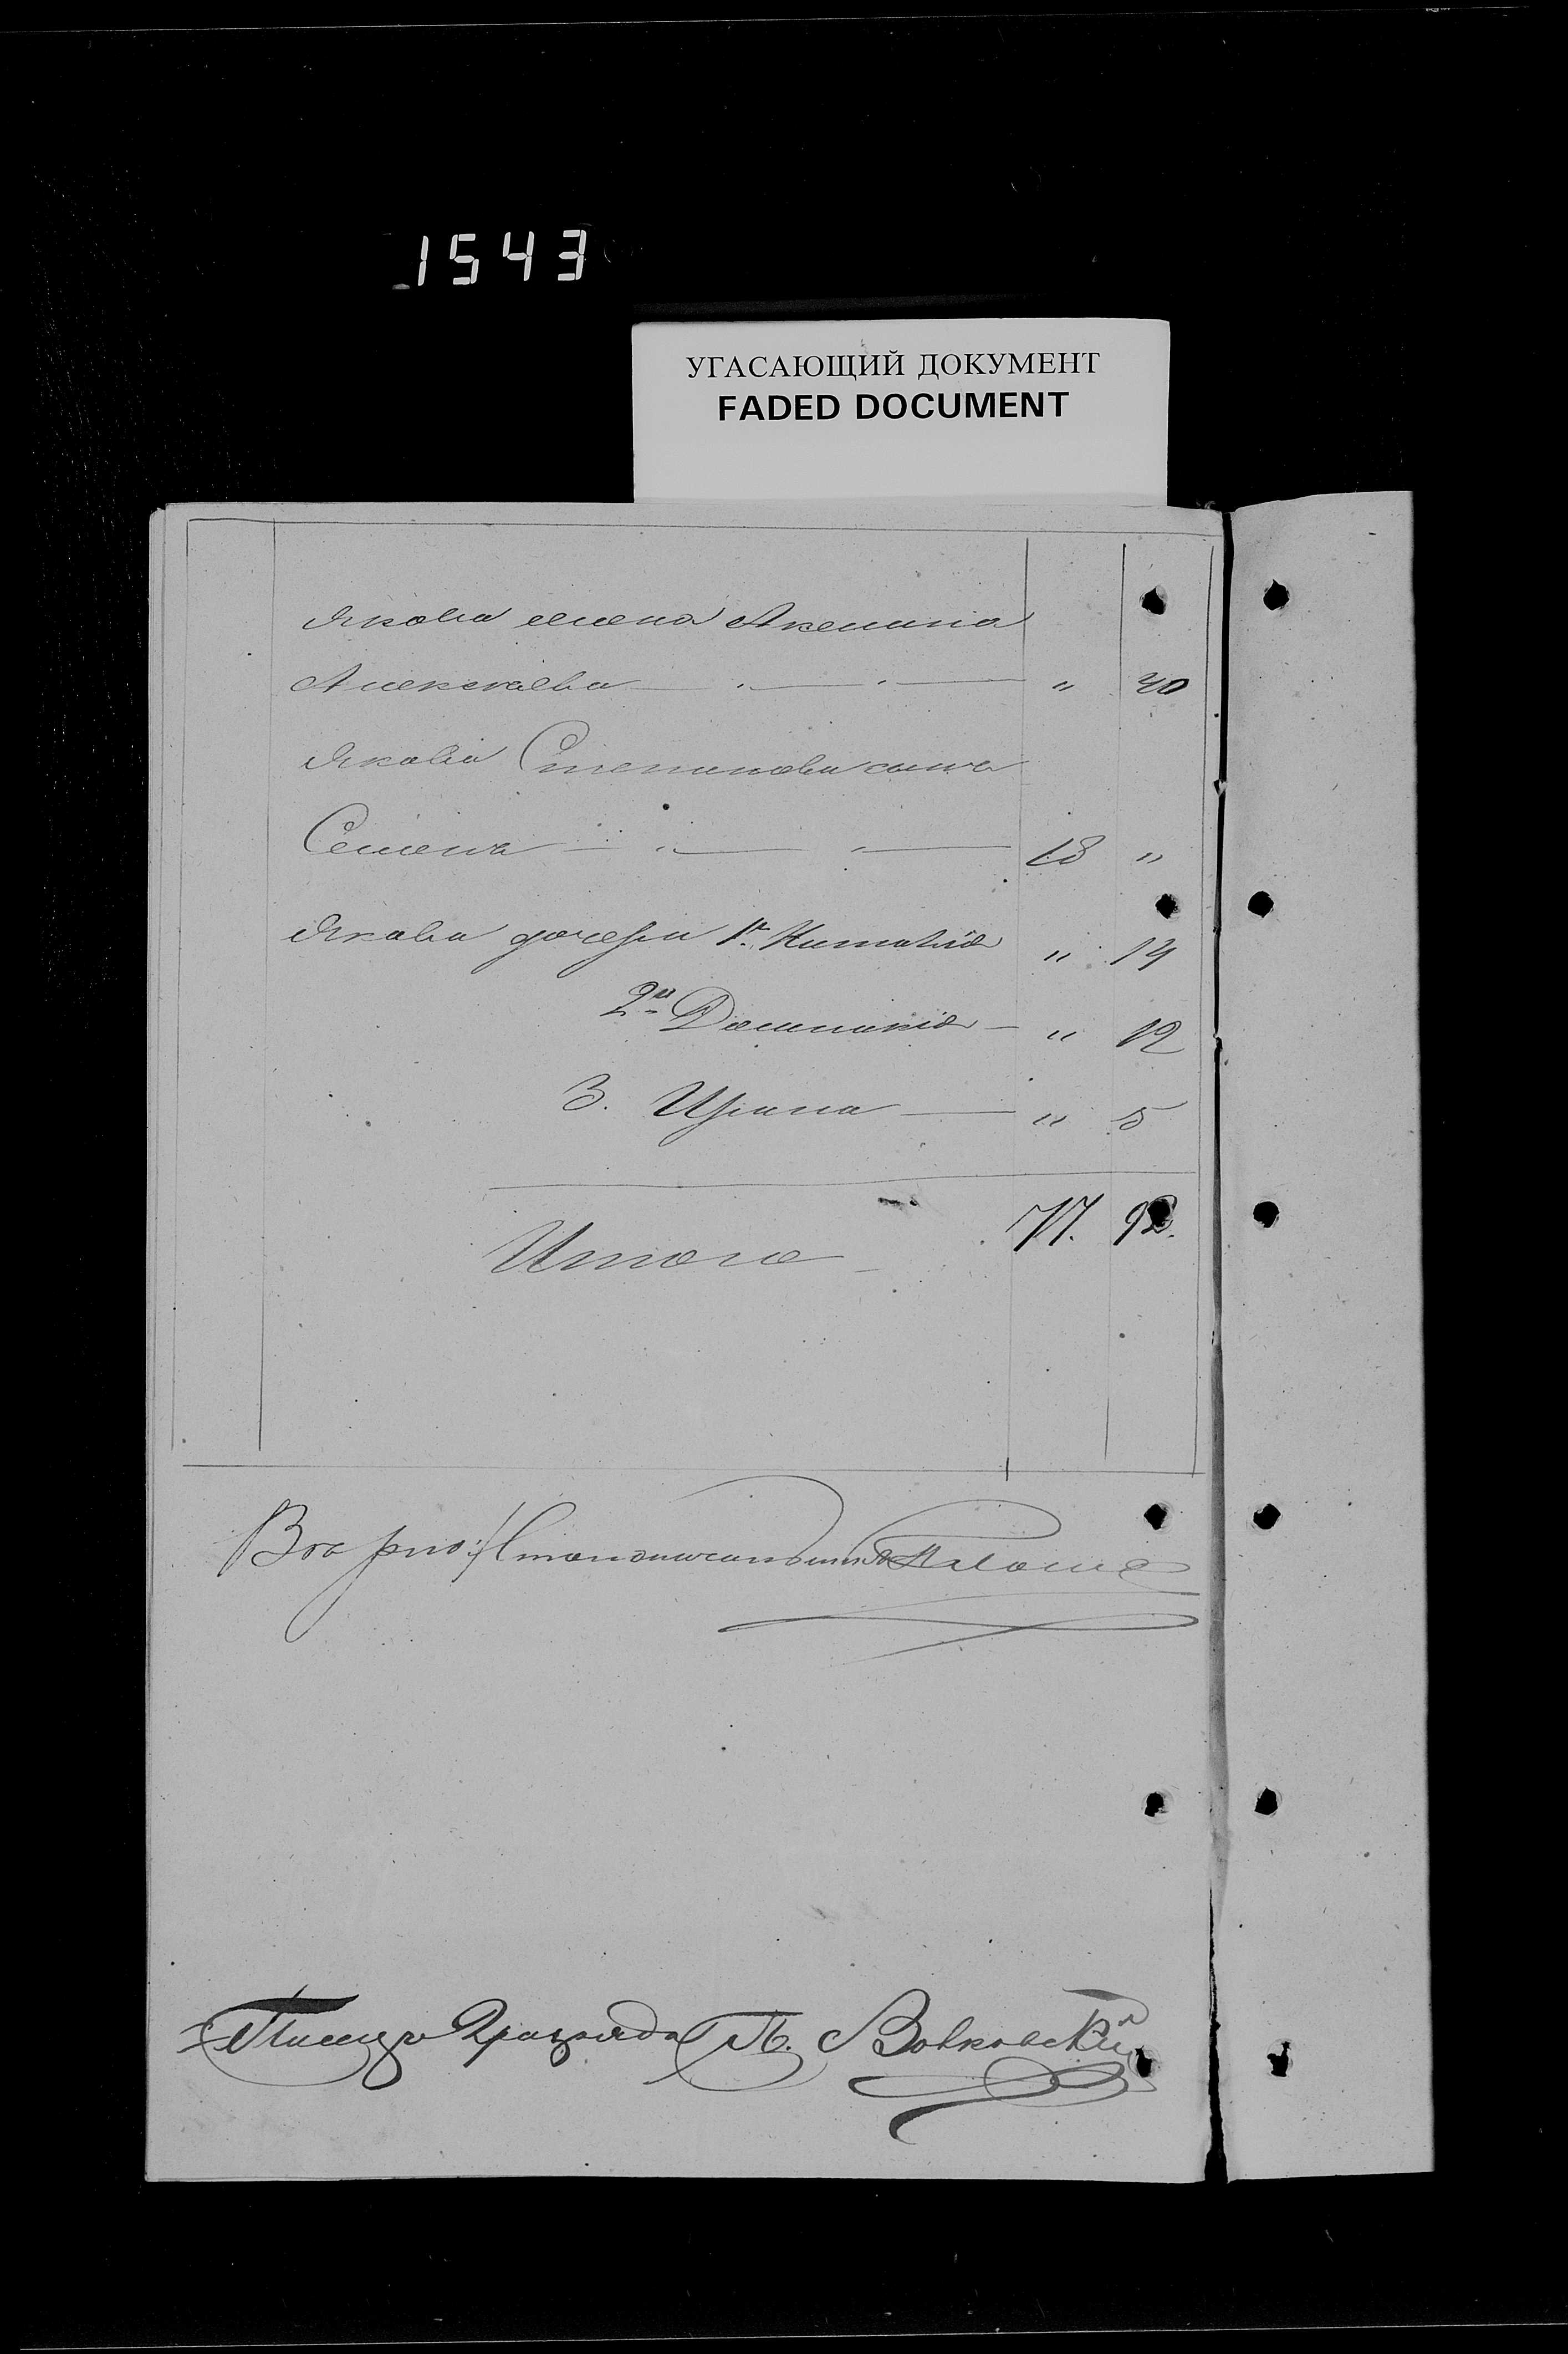 1543
УГАСАЮЩИЙ ДОКУМЕНТ
FADED DOCUMENT
Якова жена Аксинна
Алексѣева — " — " — " 40
Якова Степанова сынъ
Семенъ — " — " — 18 "
Якова дочери 1я Наталія " 14
2я Домникія — " 12
3. Ирина — " 5
Итого 77. 92.
Вѣрно:
Писецъ 2го разряда П. Волковскій